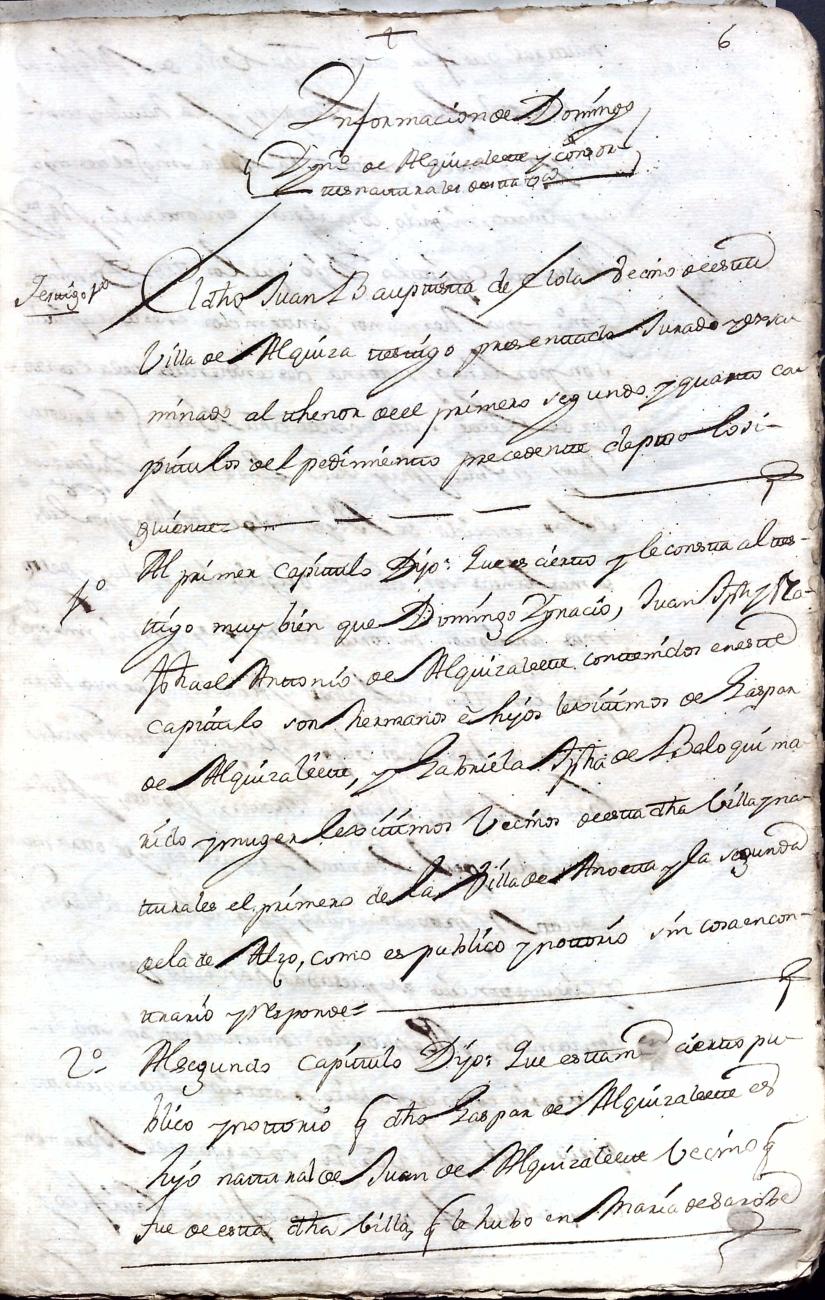 6
Informacion de Domingo
Ygn.o de Alquizalette y consor-
ttes natturales de estta V.a
Testtigo 1o
El dho Juan Bauptistta de Elola vecino de estta
Villa de Alquiza testtigo presenttado Jurado y exsa-
minado al thenor de el primero segundo y quartto ca-
pittulos del pedimientto precedentte depuso lo si-
guientte
1o
Al primer capittulo Dijo: Que es ciertto y le constta al tes-
ttigo muy bien que Domingo Ygnacio, Juan Jph y Ra-
phael Anttonio de Alquizalette conttenidos en estte
capittulo son hermanos e hijos lexittimos de Gaspar
de Alquizalette, y Gabriela Jpha de Beloqui ma-
rido y muger lexittimos Vecinos de estta dha Villa y na-
tturales el primero de la Villa de Anoetta y la segunda
de la de Alzo, como es publico y nottorio sin cosa en con-
ttrario y responde=
2o
Al segundo capittulo Dijo: Que es ttam.en ciertto pu-
blico y nottorio q dho Gaspar de Alquizalette es
hijo nattural de Juan de Alquizalette Vecino q
fue de estta dha Villa, q le hubo en Maria de Sarobe